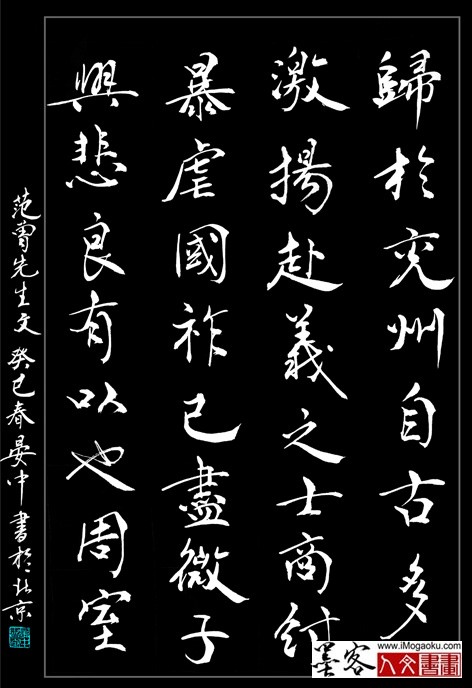 歸於兖州自古多
激揚赴義之士商紂
暴虐國祚已盡微子
興悲良有以也周室
范曾先生文 癸巳春晏中書於北京
墨客
www.iMogaoku.com
人文書畫